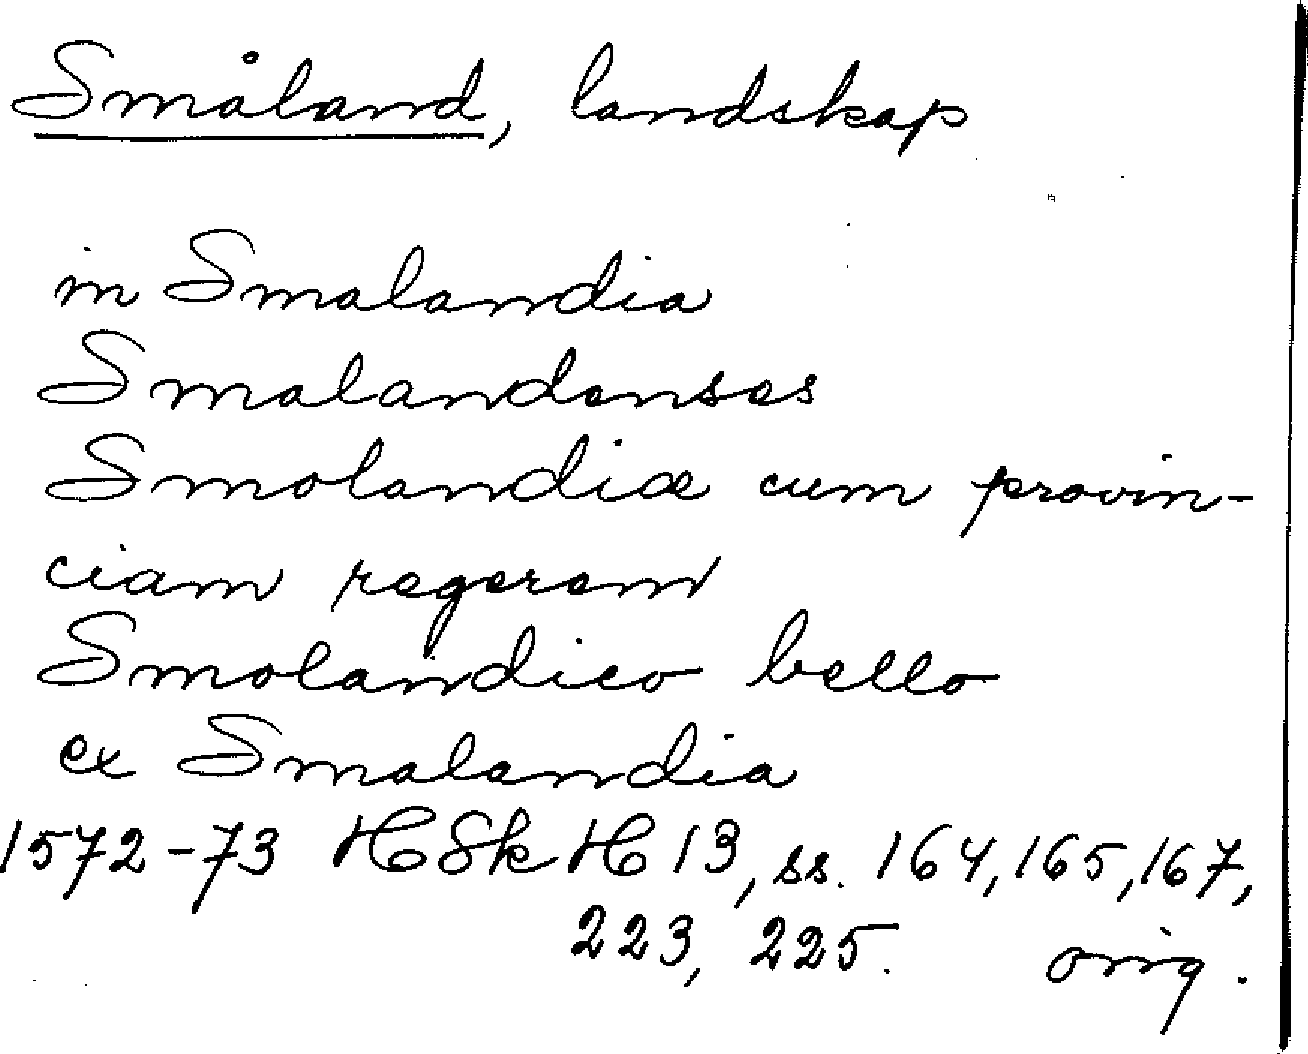 Småland, landskap
in Smalandia
Smalandenses
Smolandiæ cum provin-
ciam regerem
Smolandico bello
ex Smalandia
1572-73 HSkH 13, ss. 164, 165, 167,
223, 225. orig.